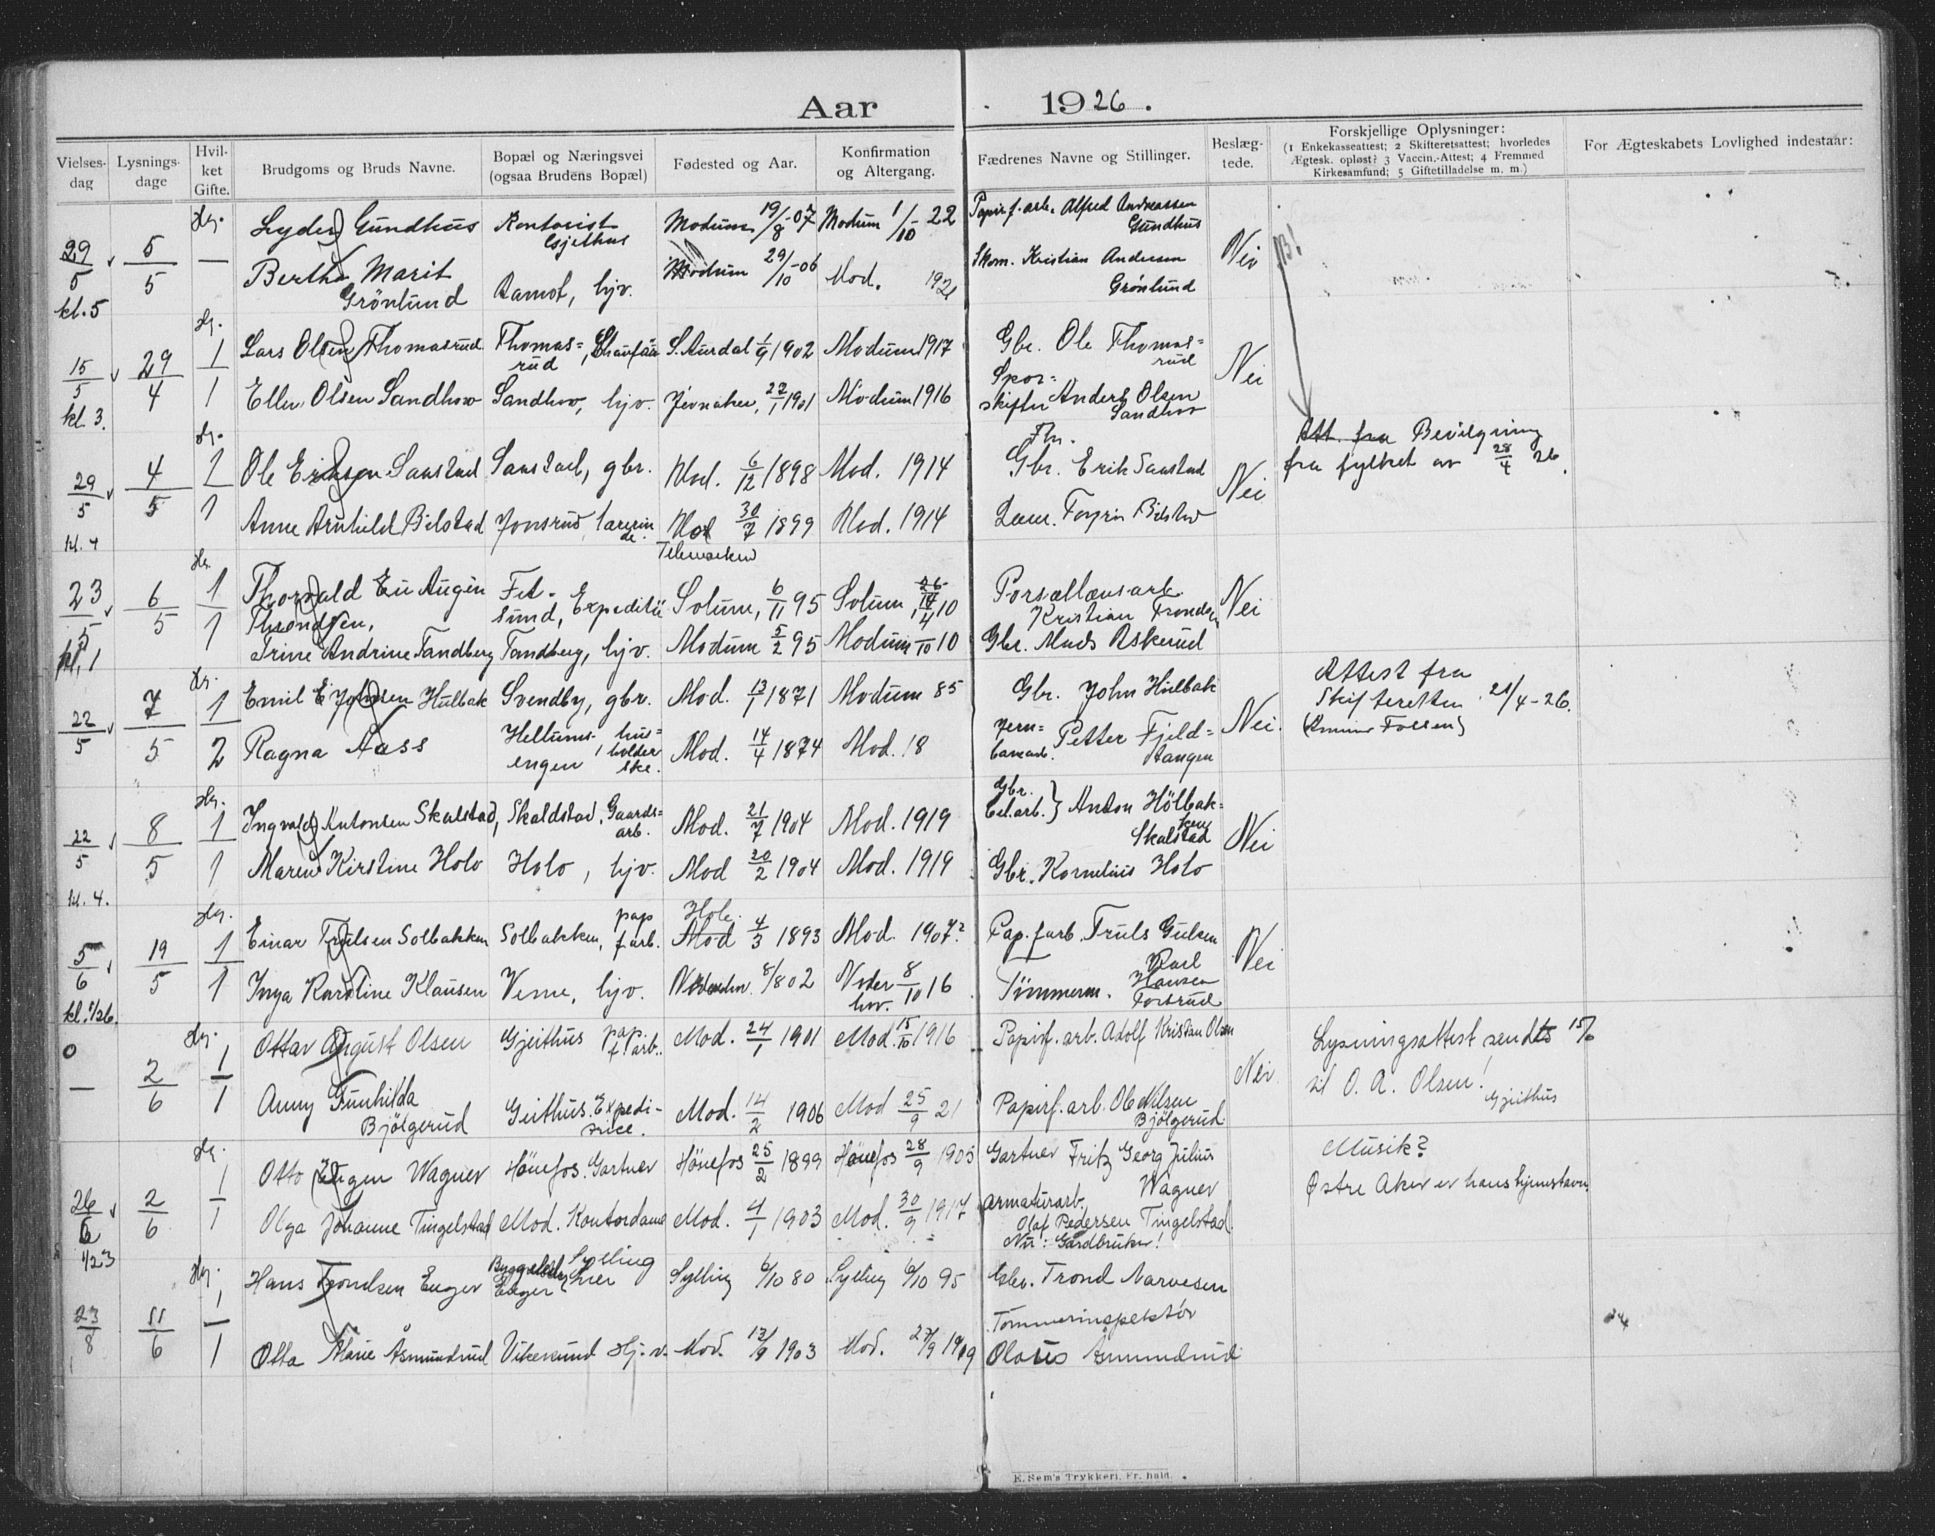 Aar 1926.
Vielses-dag
Lysnings-dage
Hvil-ket Gifte.
Brudgoms og Bruds Navne.
Bopæl og Næringsvei (ogsaa Brudens Bopæl)
Fødested og Aar.
Konfirmation og Altergang.
Fædrenes Navne og Stillinger.
Beslæg-tede.
Forskjellige Oplysninger:
(1 Enkekasseattest; 2 Skifteretsattest; hvorledes
Ægtesk. opløst? 3 Vaccin.-Attest; 4 Fremmed
Kirkesamfund; 5 Giftetilladelse m. m.)
For Ægteskabets Lovlighed indestaar:
29/5 5/5 Lyder Gundhus Kontorist Gjeithus Modum 19/8-07 Modum 1/10 22 Papirf.arb. Alfred Andreassen Gundhus Nei
kl. 5 Bertha Marit Grönlund Aamot, hjv. Modum 29/10-06 Mod. 1921 Skom. Kristian Andersen Grønlund
15/5 29/4 1 Lars Olsen Thomasrud Thomas=rud, Chaufför S. Aurdal 1/9 1902 Modum 1917 Gbr. Ole Thomas=rud Nei
kl. 3. 1 Ellen Olsen Sandhov Sandhov, hjv. Jevnaker, 22/1 1901 Modum 1916 Spor=skifter Anders Olsen Sandhov
29/5 4/5 1 Ole Eriksen Saastad Saastad, gbr. Mod. 6/12 1898 Mod. 1914 Fhv. Gbr. Erik Saastad Nei Att. fra Bevilgning
fra fylket av 28/4 26.
kl. 4 1 Anne Arnhild Bilstad Jonsrud, lærerinde. Mod 30/7 1899 Mod. 1914
23/5 6/5 1 Thorvald Eu Augen Throndsen, Fet-sund, Telemarken Solum, 6/11 95 Solum, 10 Porsællænsarb. Kristian Nei
kl. 1 1 Trine Andrine Tandberg Tandberg, hjv. Modum 5/2 95 Modum /10 10 Gbr. Mads Askerud
22/5 7/5 1 Emil E Johnsen Hulbak Svendby, gbr. Mod. 13/1 1871 Modum 85 Gbr. John Hulbak Nei. Attest fra
Skifteretten 21/4-26.
2 Ragna Aass hus=holderske. Mod. 14/4 1874 Mod. 18 Petter Fjeld=stangen
22/5 8/5 1 Ingvald Antonsen Skalstad, Skaldstad, Gaards=arb. Mod. 21/7 1904 Mod. 1919 Gbr. Anton Hölbak=ken Skalstad Nei
kl. 4. 1 Maren Kirstine Holo Holo, hjv. Mod 20/2 1904 Mod. 1919 Gbr. Kornelius Holo
5/6 19/5 1 Einar Trulsen Solbakken Solbakken, pap f.arb. Hole. Mod 4/3 1893 Mod. 1907? Pap.f.arb. Truls Gulsen Nei
1 Inga Karoline Klausen Verne, hjv. 8/8 02 8/10 16 Tömmerm. Karl Hansen
0 2/6 1 Ottar August Olsen Gjeithus pap. f arb. Mod. 24/1 1901 Mod. 15/10 1916 Papirf. arb. Adolf Kristian Olsen Nei. Lysningsattest sendt 15/6
til O. A. Olsen! Gjeithus
— 1 Anny Gunhilda Bjölgerud Geithus. Expedi-trice. Mod. 14/2 1906 Mod 25/9 21 Papirf. arb. Ole Nilsen Bjölgerud
26/6 2/6 1 Otto Eugen Wagner Hönefos. Gartner Hönefos 25/2 1899 Hönefos 28/9 Gartner Fritz Georg Julius Wagner Musik?
Østre Aker er hans hjemstavn.
1 Olga Johanne Tingelstad Mod. Kontordame Mod. 4/1 1903 Mod. 30/9 1917 armaturarb. Olaf Pedersen Tingelstad. Nu: Gårdbruker!
23/8 11/6 1 Hans Trondsen Enger Enger Sylling Lier Sylling 6/10 80 Sylling 6/10 95 Gbr. Trond Narvesen
1 Otta Marie Åsmundrud Vikersund Hj.v. Mod. 1903 Mod. 27/9 1919 Tømmerinspektør Olaus Åsmundrud
E. Sem's Trykkeri, Fr. hald.